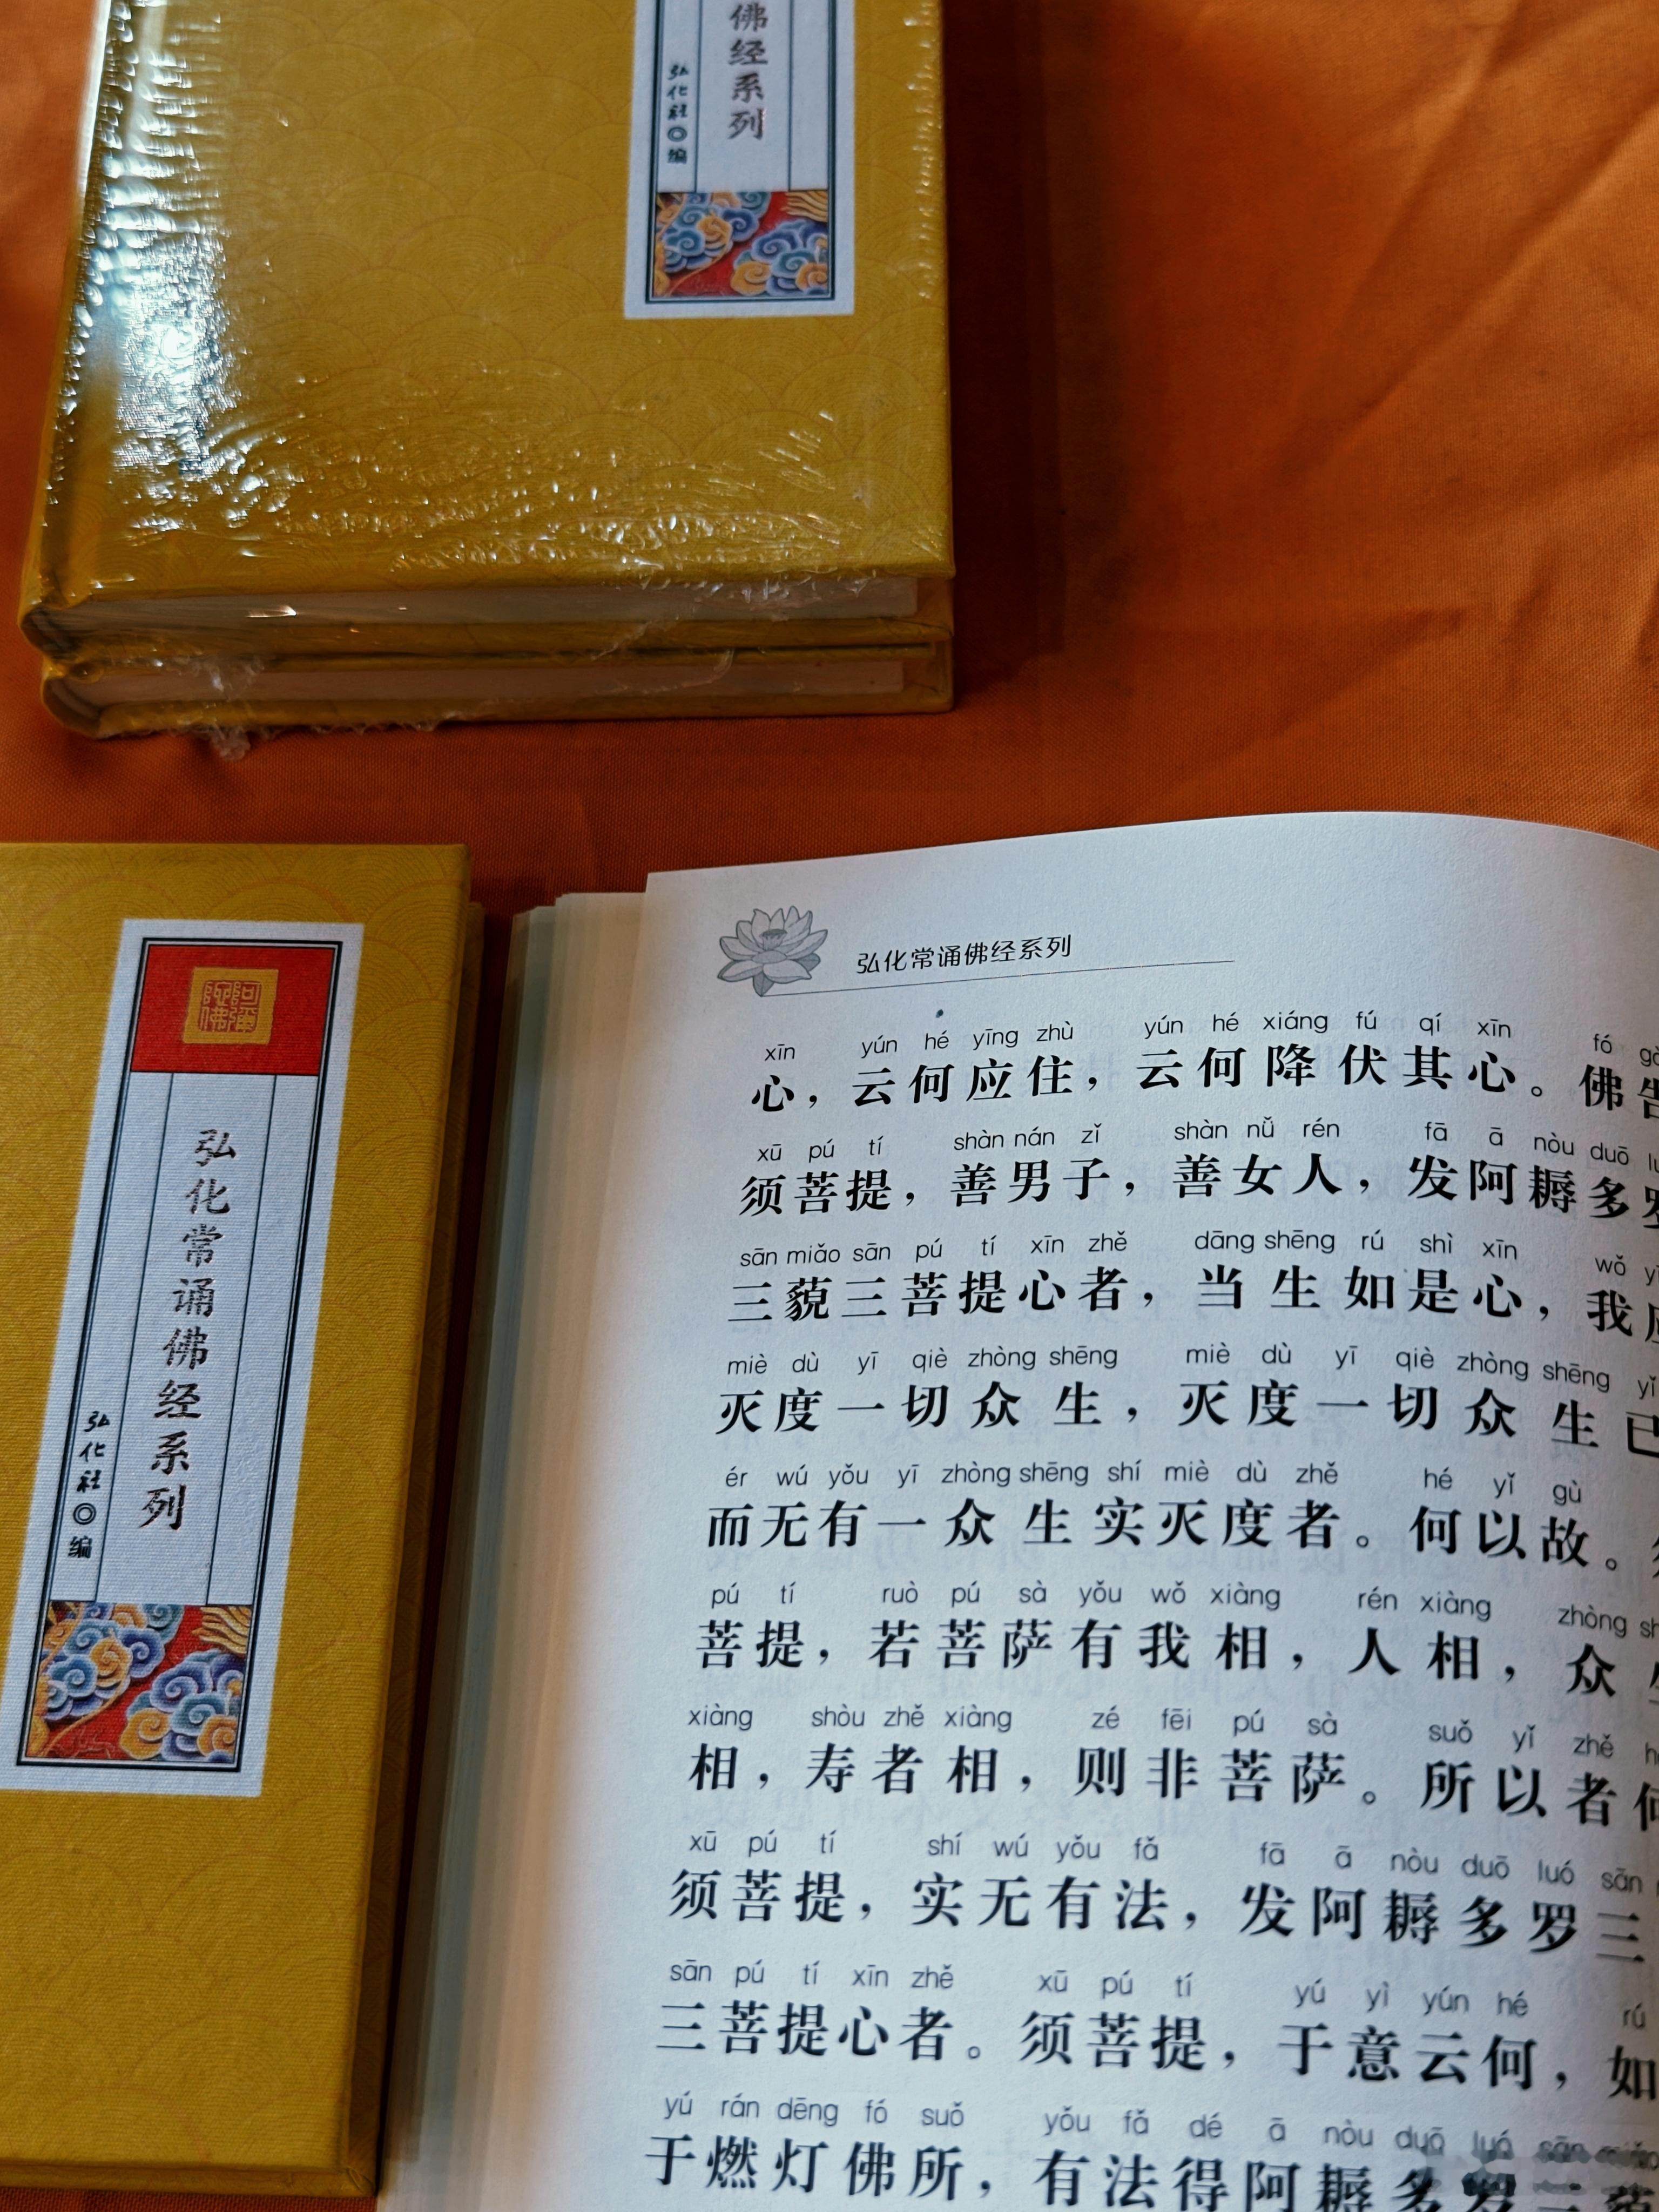 佛经系列
弘化社◎编
弘化常诵佛经系列
弘化社◎编
弘化常诵佛经系列
xīn yún hé yīng zhù yún hé xiáng fú qí xīn fó
心，云何应住，云何降伏其心。佛告
xū pú tí shàn nán zǐ shàn nǚ rén fā ā nòu duō
须菩提，善男子，善女人，发阿耨多罗
sān miǎo sān pú tí xīn zhě dāng shēng rú shì xīn wǒ
三藐三菩提心者，当生如是心，我
miè dù yī qiè zhòng shēng miè dù yī qiè zhòng shēng yǐ
灭度一切众生，灭度一切众生已
ér wú yǒu yī zhòng shēng shí miè dù zhě hé yǐ gù
而无有一众生实灭度者。何以故。
pú tí ruò pú sà yǒu wǒ xiàng rén xiàng zhòng
菩提，若菩萨有我相，人相，众
xiàng shòu zhě xiàng zé fēi pú sà suǒ yǐ zhě
相，寿者相，则非菩萨。所以者何
xū pú tí shí wú yǒu fǎ fā ā nòu duō luó sān
须菩提，实无有法，发阿耨多罗三
sān pú tí xīn zhě xū pú tí yú yì yún hé rú
三菩提心者。须菩提，于意云何，如
yú rán dēng fó suǒ yǒu fǎ dé ā nòu duō luó sān
于燃灯佛所，有法得阿耨多罗三藐